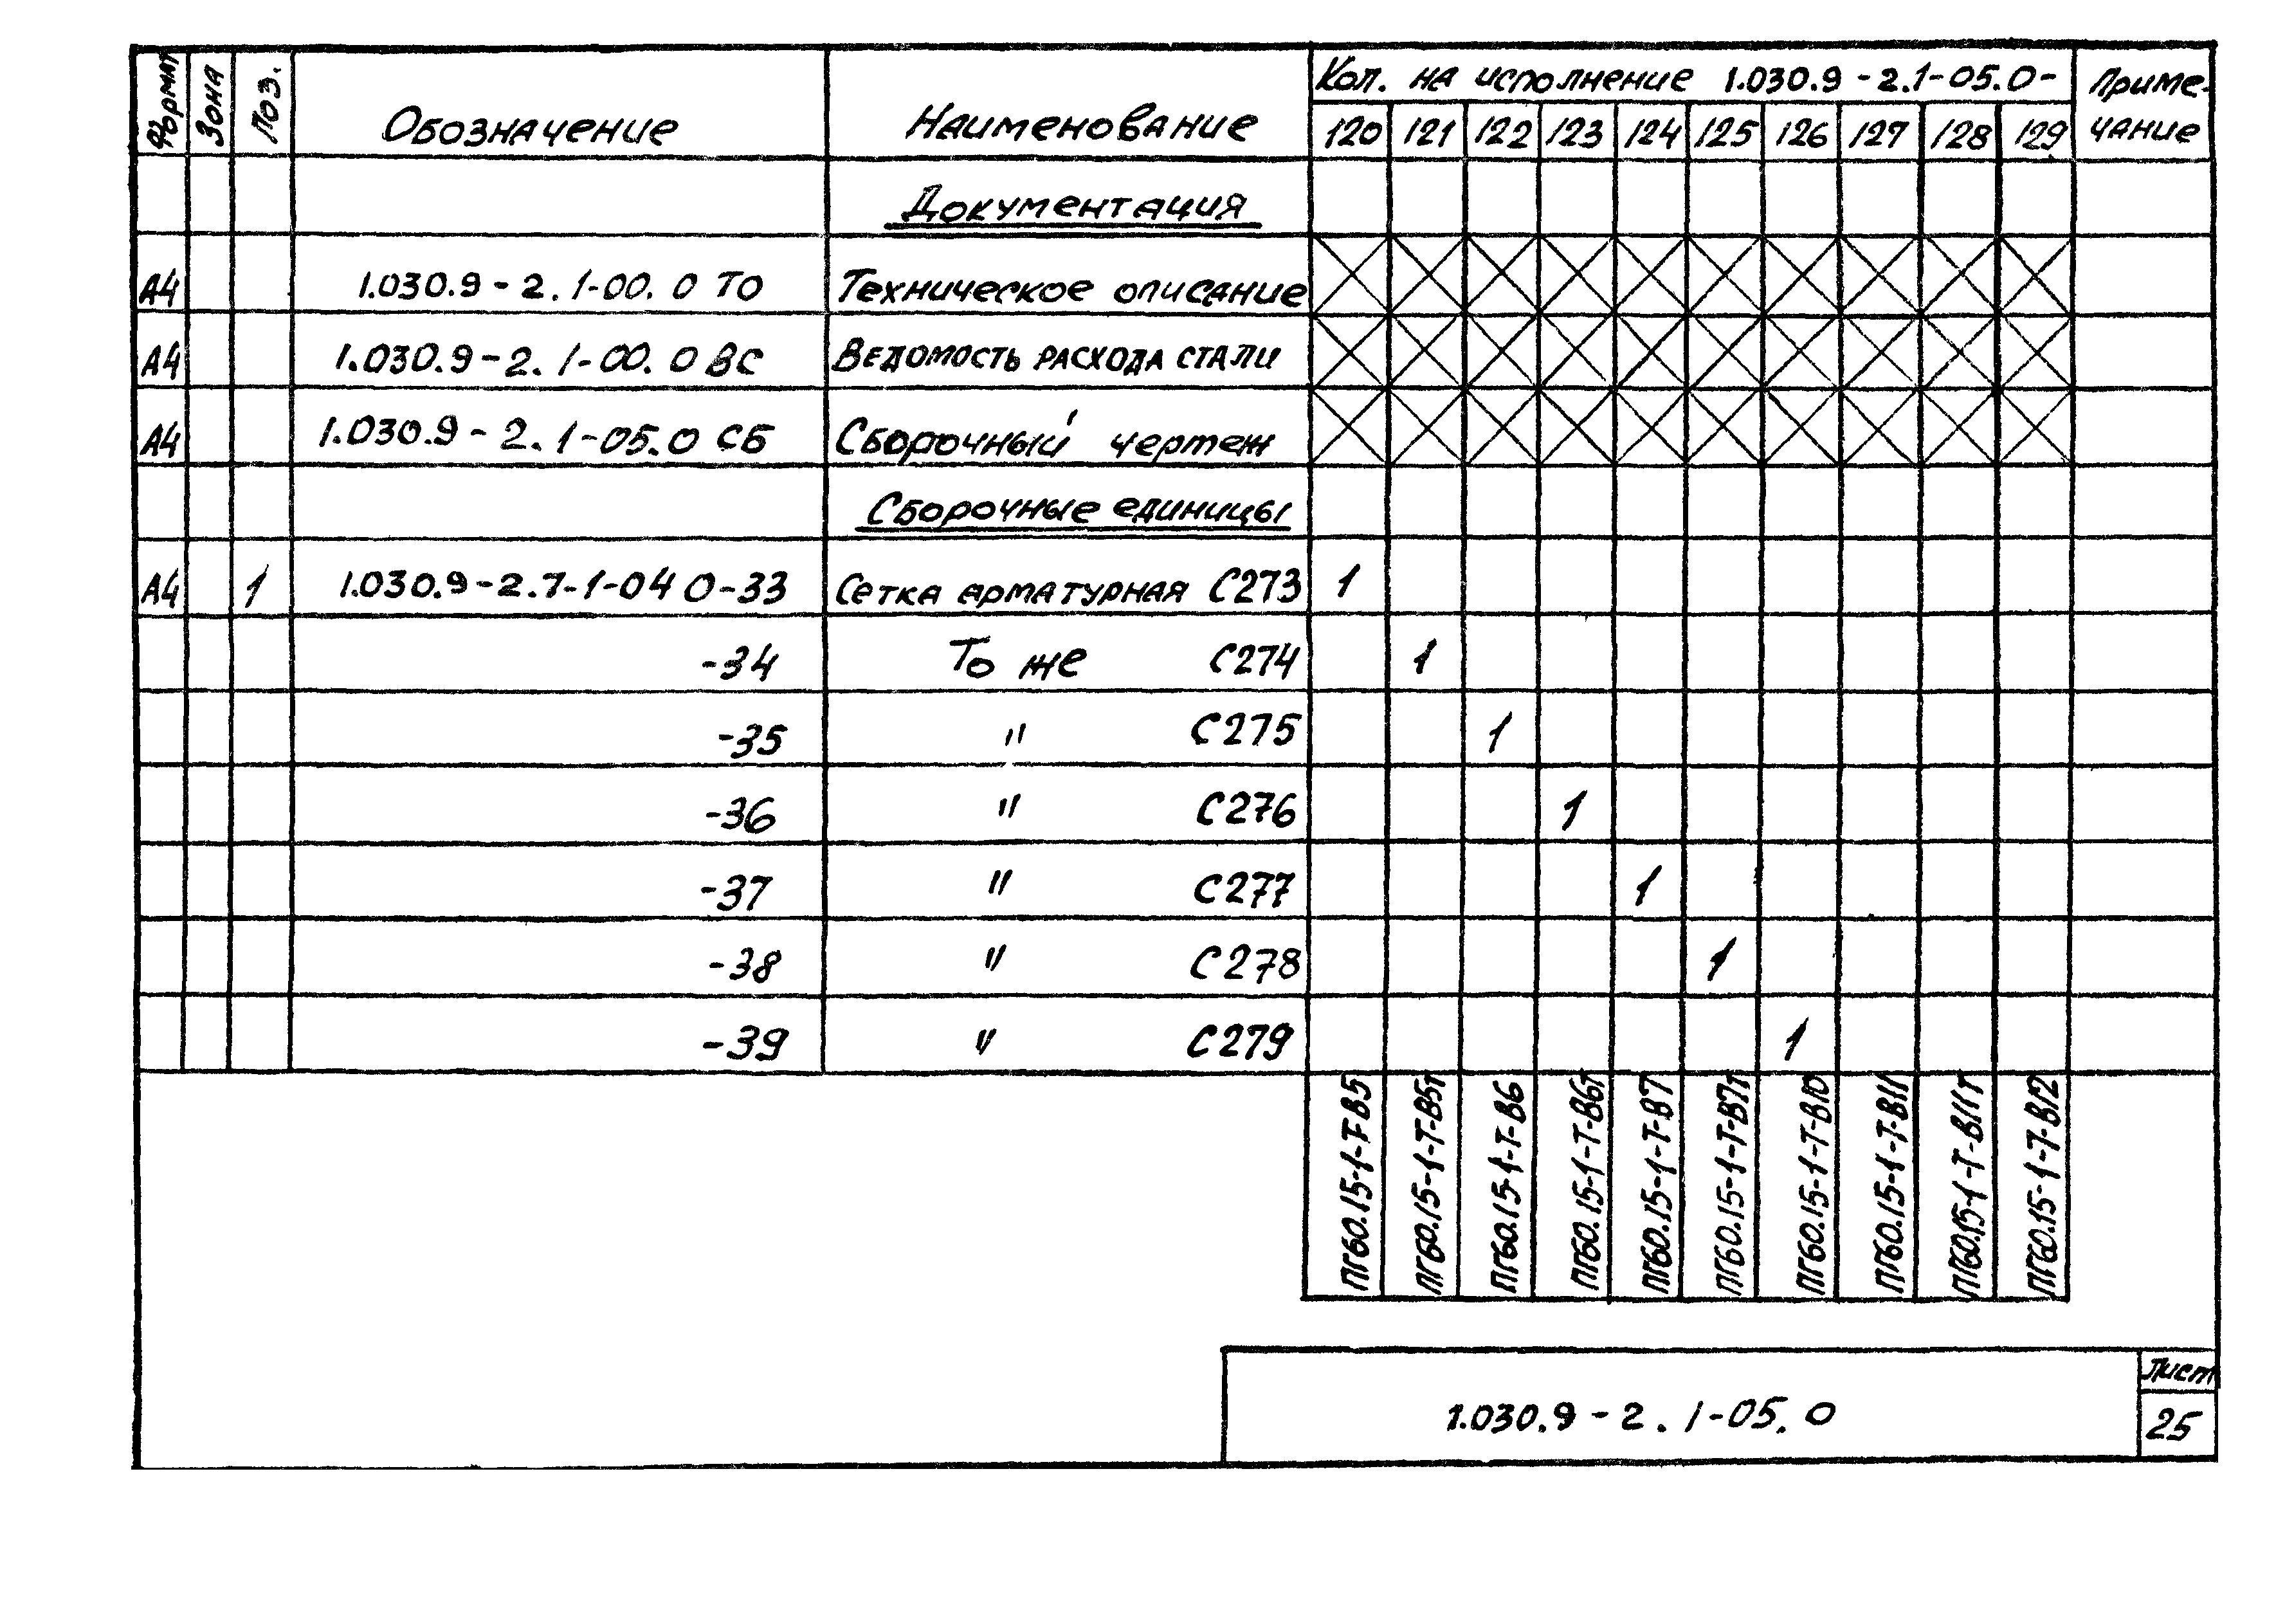 Формат Зона Поз. Обозначение Наименование Кол. на исполнение 1.030.9-2.1-05.0- Приме-
120 121 122 123 124 125 126 127 128 129 чание
Документация
А4 1.030.9-2.1-00.0 ТО Техническое описание
А4 1.030.9-2.1-00.0 ВС Ведомость расхода стали
А4 1.030.9-2.1-05.0 СБ Сборочный чертеж
Сборочные единицы
А4 1 1.030.9-2.7-1-04 0-33 Сетка арматурная С273 1
-34 То же С274 1
-35 " С275 1
-36 " С276 1
-37 " С277 1
-38 " С278 1
-39 " С279 1
ПГ60.15-1-Т-В5
ПГ60.15-1-Т-В5т
ПГ60.15-1-Т-В6
ПГ60.15-1-Т-В6т
ПГ60.15-1-Т-В7
ПГ60.15-1-Т-В7т
ПГ60.15-1-Т-В10
ПГ60.15-1-Т-В11
ПГ60.15-1-Т-В11т
ПГ60.15-1-Т-В12
1.030.9-2.1-05.0
Лист
25